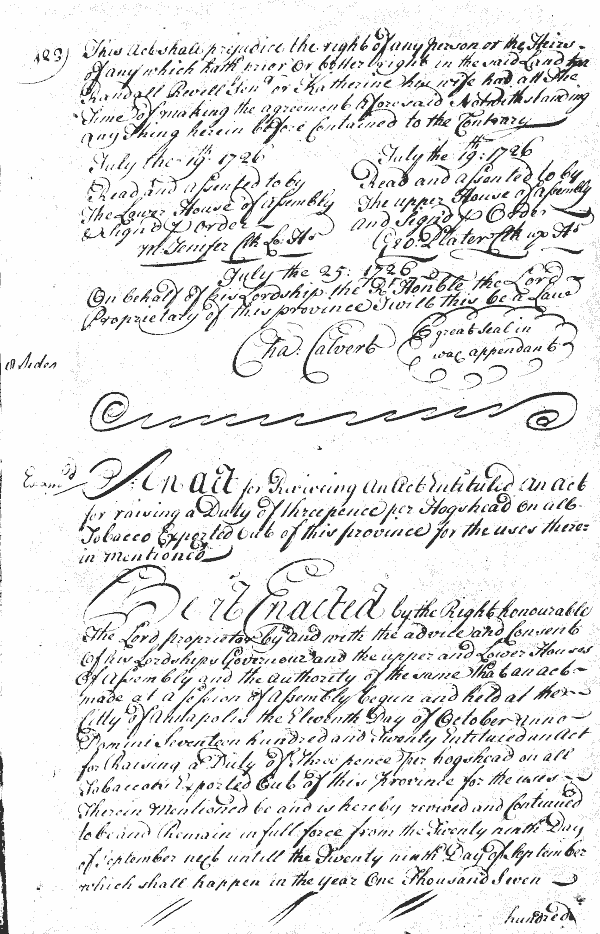 123)
This Act shall prejudice the right of any person or the Heirs
of any which hath prior or better right in the said Land than
Randall Revell Senr or Katherine his wife had att the
Time of making the agreement aforesaid Notwithstanding
any thing herein before Contained to the Contrary
July the 19th: 1726
Read and assented to by
The Lower House of Assembly
& Signd p Order
M. Jenifer Clk Lo: Hs
July the 19th: 1726
Read and assented to by
The upper House of Assembly
and Signd p Order
Geo: Plater Clk up Hs
July the 25: 1726
On behalf of his Lordship the Rt Honble the Lord
Proprietary of this province I will this be a Law
Cha: Calvert
great Seal in
wax appendant
18 Sides
Examd
An act for Reviveing an Act Entituled An Act
for raising a Duty of three pence per Hogshead on all
Tobacco Exported Out of this province for the uses there
in mentioned
Be it Enacted by the Right honourable
The Lord proprietor by and with the advice and Consent
Of his Lordships Governour and the upper and Lower Houses
Of Assembly and the authority of the same That an act
made at a session of Assembly begun and held at the
Citty of Annapolis the Eleventh Day of October anno
Domini Seventeen hundred and Twenty Entituled an Act
for Raising a Duty of three pence per hogshead on all
Tobaccoes Exported Out of this Province for the uses
Therein Mentioned be and is hereby revived and Continued
to be and Remain in full force from the Twenty ninth Day
of September next untill the Twenty ninth Day of September
which shall happen in the year One Thousand Seven
hundred